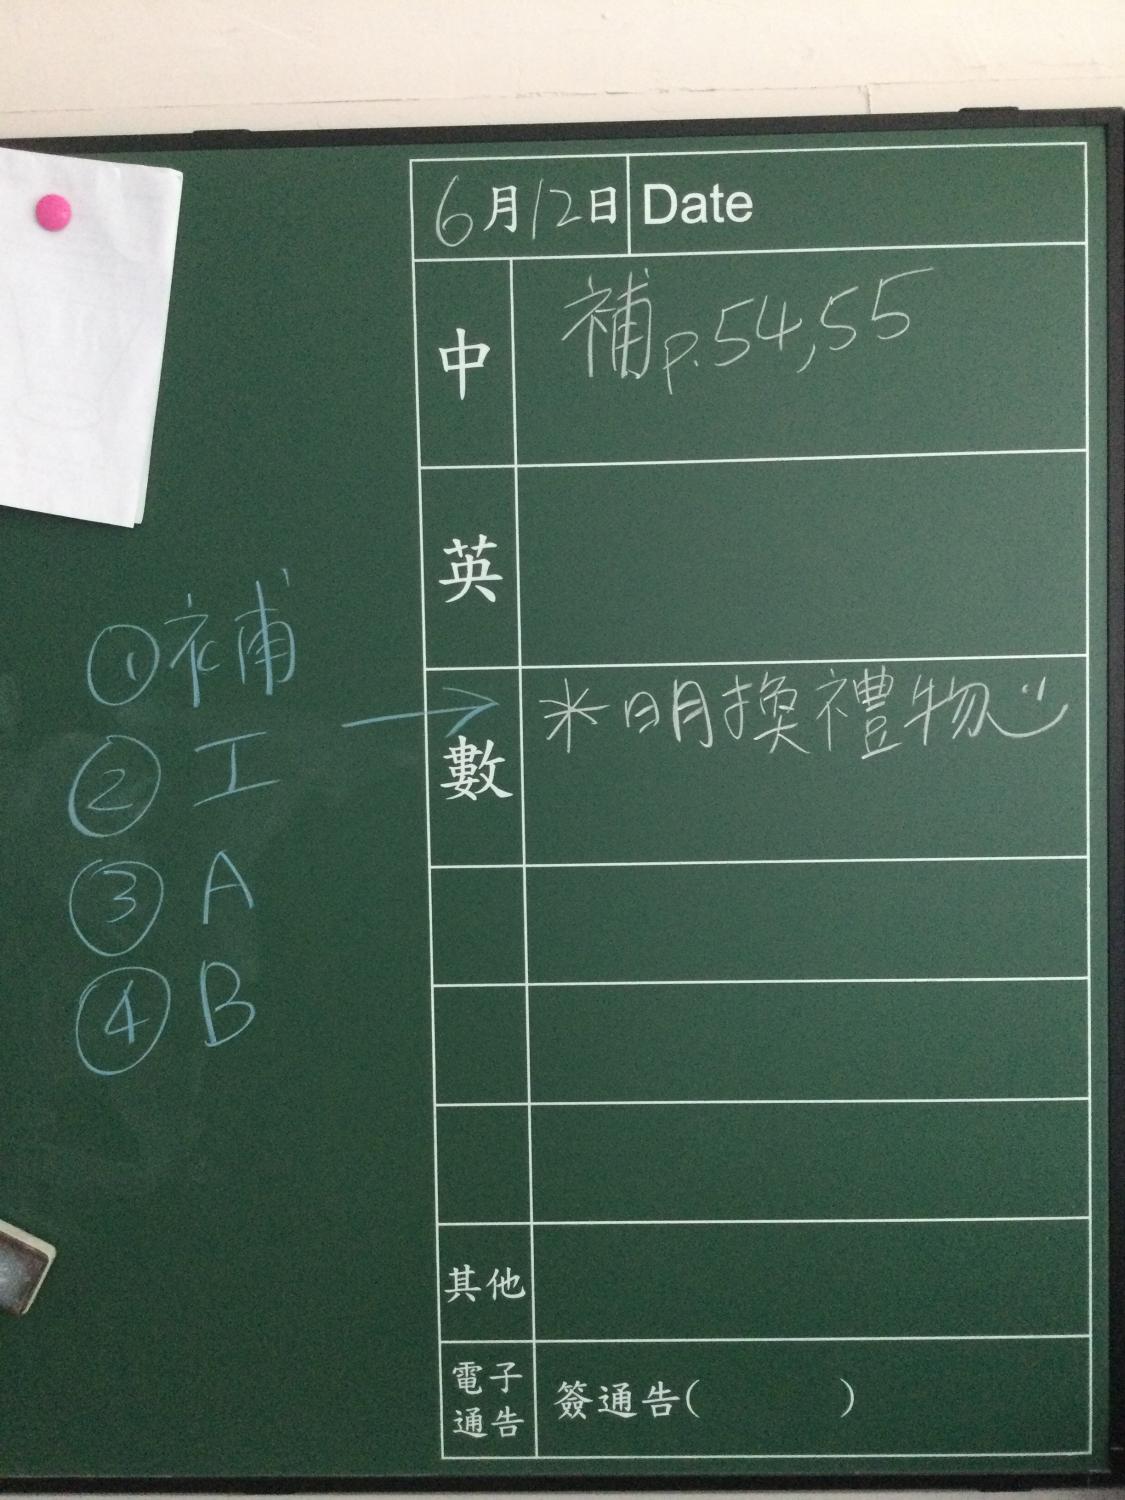 6月12日 Date
中 補p.54,55
英
數 *明換禮物
其他
電子
通告
簽通告( )
①補
② 工
③ A
④ B